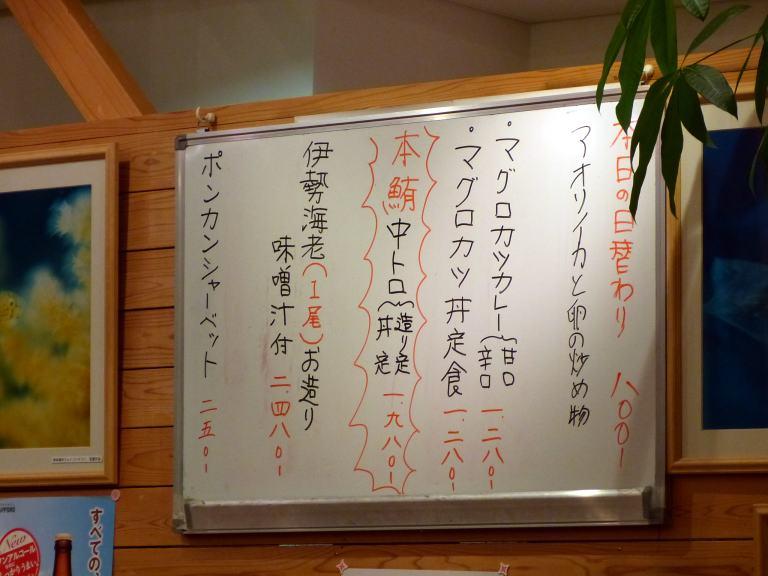 本日の日替わり 八〇〇-
アオリイカと卵の炒め物
・マグロカツカレー{甘口 辛口 一.二八〇-
・マグロカツ丼定食 一.二八〇-
本鮪中トロ{造り定 丼定 一.九八〇-
伊勢海老(1尾)お造り
味噌汁付 二.四八〇-
ポンカンシャーベット 二五〇-
すべての、
New
ンアルコール